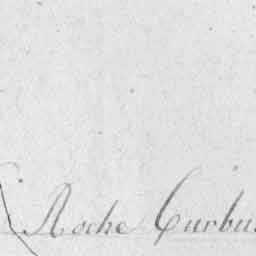 Roche Curbu